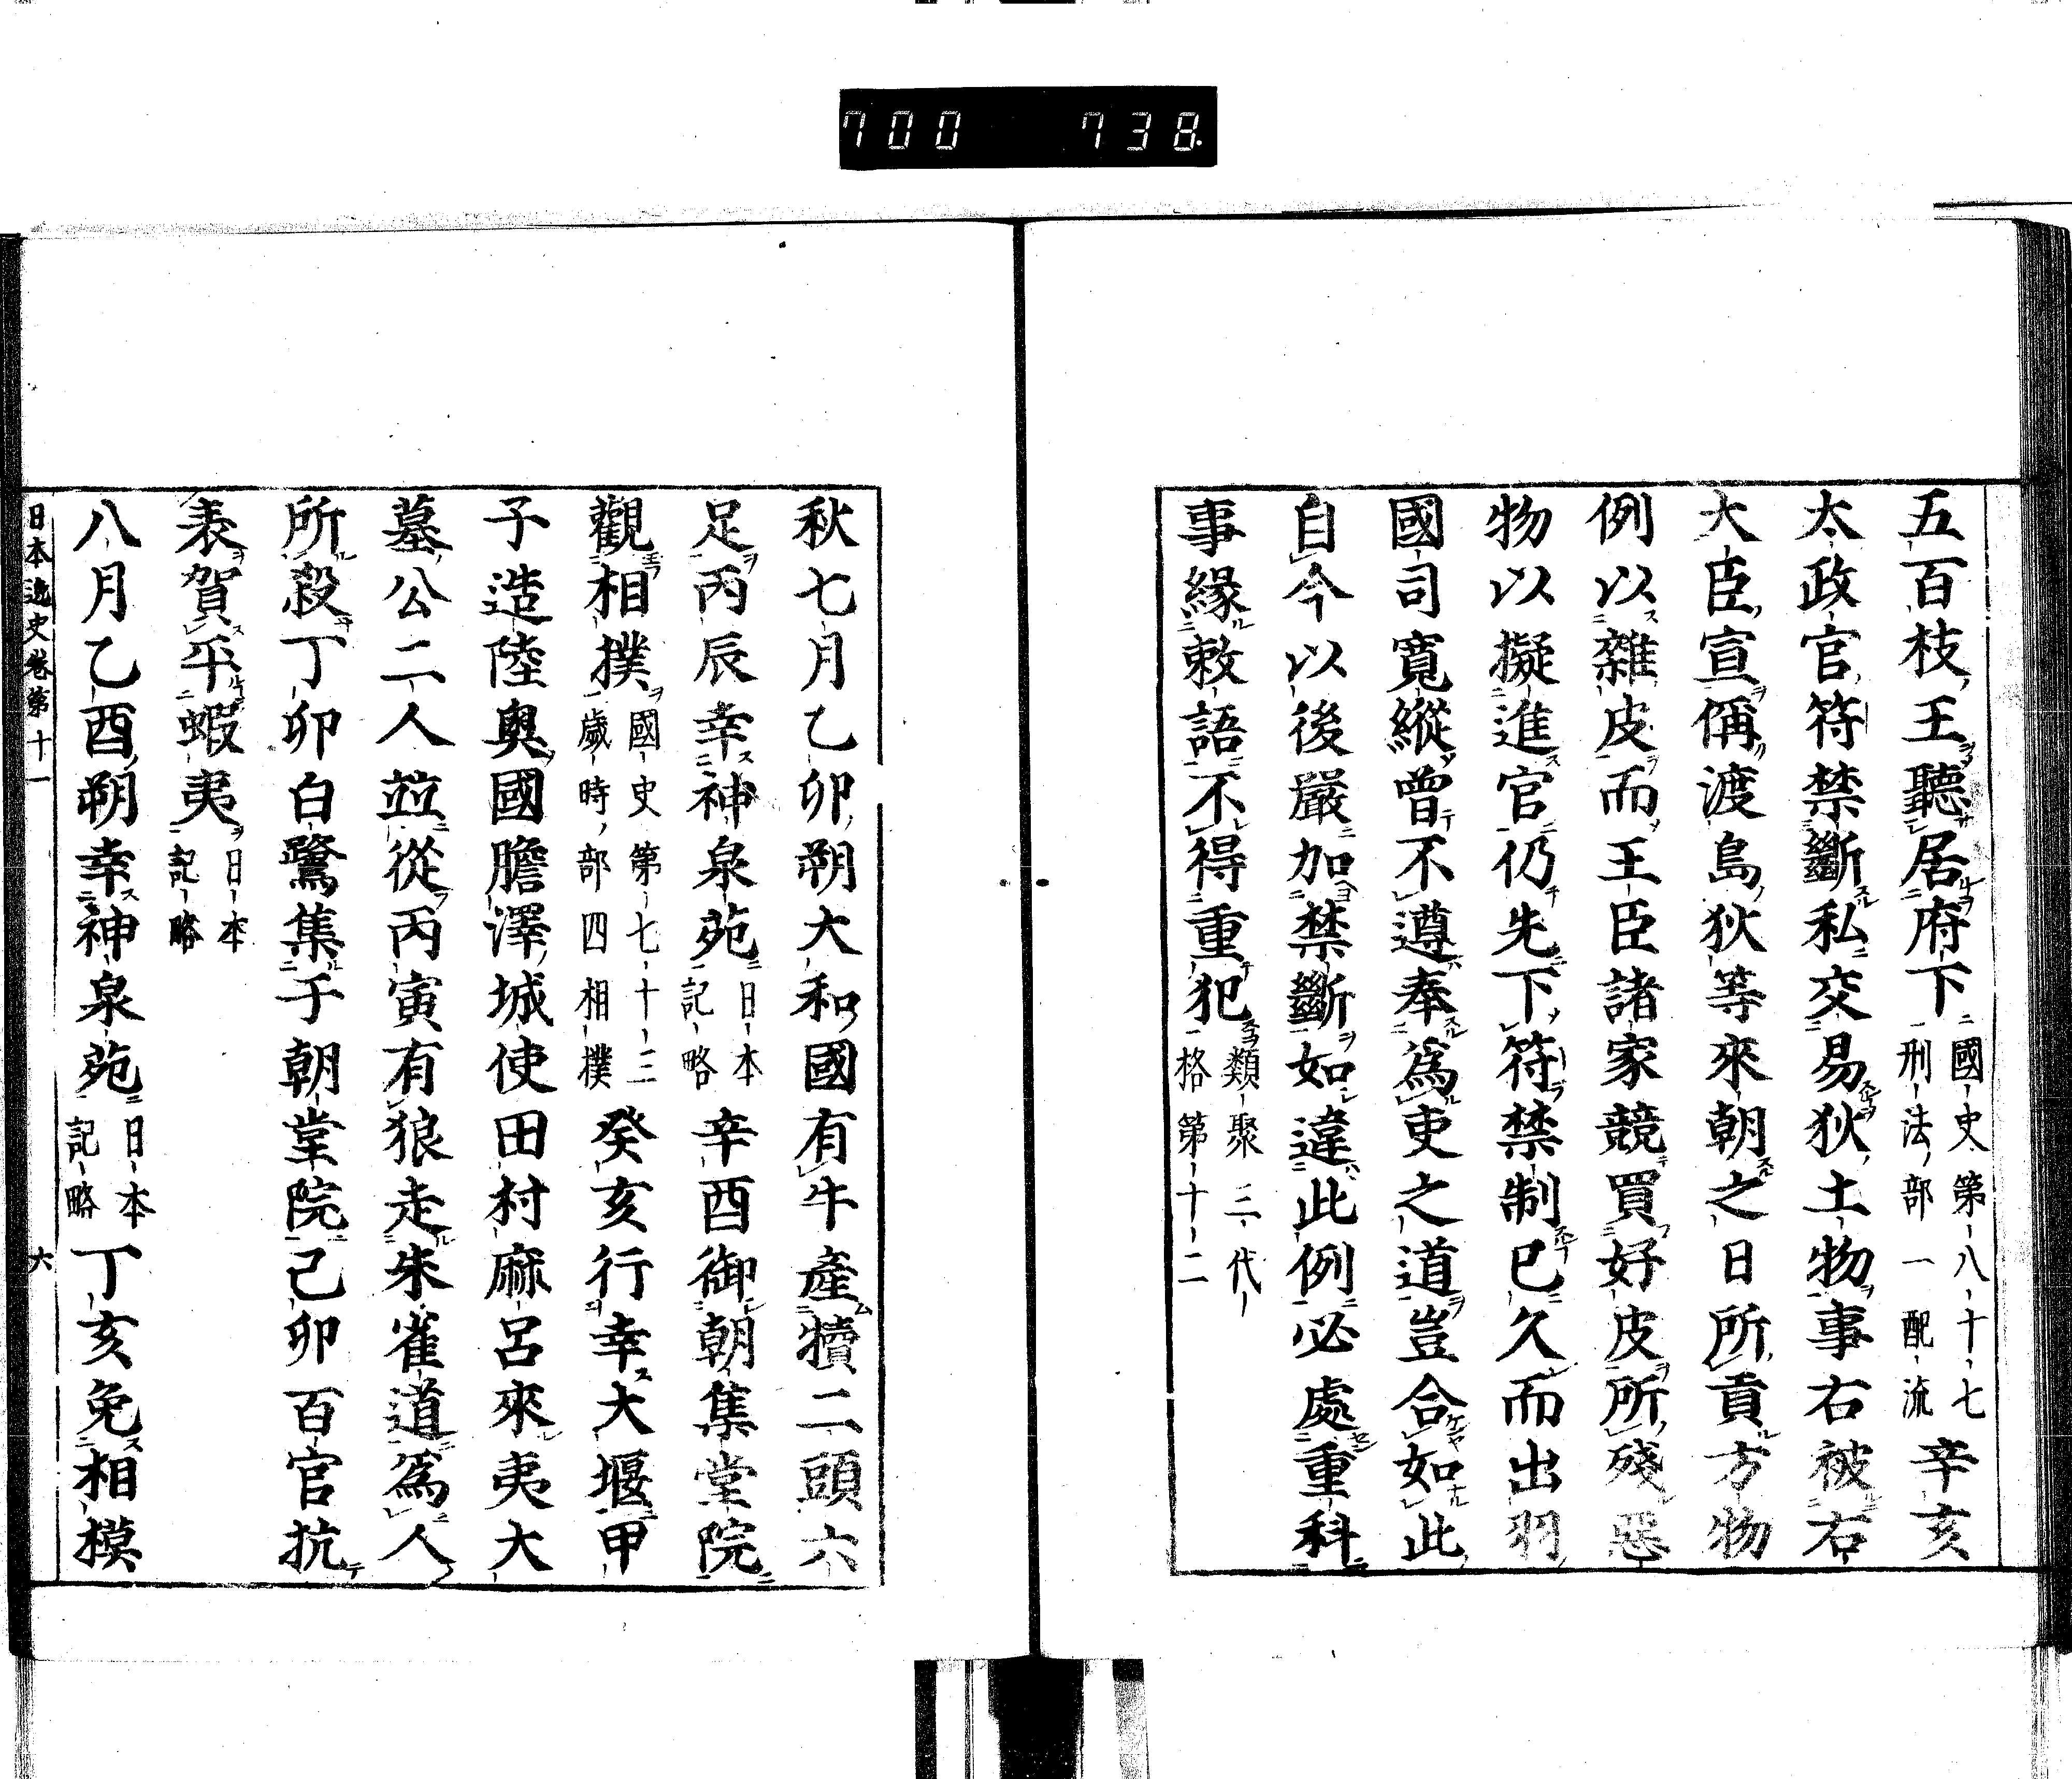 700 738
五百枝王聽居府下國史第八十七刑法部一配流辛亥
太政官符禁斷私交易狄土物事右被右
大臣宣偁渡島狄等來朝之日所貢方物
例以雜皮而王臣諸家競買好皮所殘惡
物以擬進官仍先下符禁制已久而出羽
國司寬縱曾不遵奉爲吏之道豈合如此
自今以後嚴加禁斷如違此例必處重科
事緣敕語不得重犯類聚三代格第十二
秋七月乙卯朔大和國有牛產犢二頭六
足丙辰幸神泉苑日本記略辛酉御朝集堂院
觀相撲國史第七十三歲時部四相撲癸亥行幸大堰甲
子造陸奧國膽澤城使田村麻呂來夷大
墓公二人並從丙寅有狼走朱雀道爲人
所殺丁卯白鷺集于朝堂院己卯百官抗
表賀平蝦夷日本記略
八月乙酉朔幸神泉苑日本記略丁亥免相模
日本逸史卷第十一 六